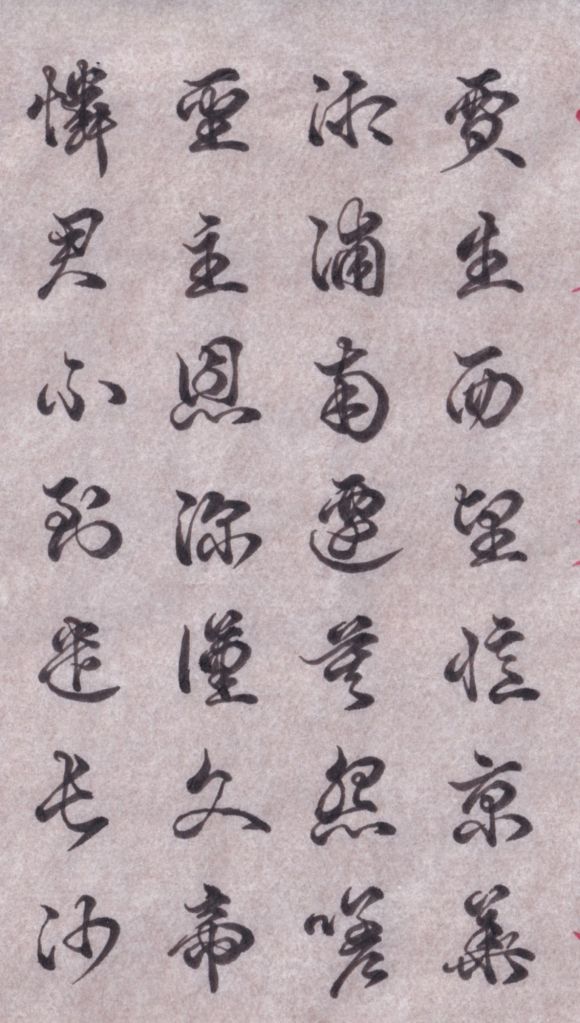 賈生西望憶京華
湘浦南遷莫怨嗟
聖主恩深漢文帝
憐君不到遣長沙